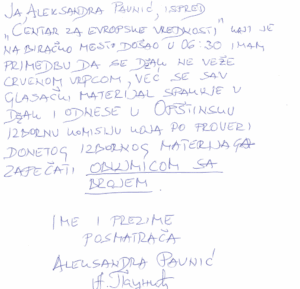 JA, ALEKSANDRA PAUNIĆ, ISPRED
„CENTAR ZA EVROPSKE VREDNOSTI," KOJI JE
NA BIRAČKO MESTO DOŠAO U 06:30 IMAM
PRIMEDBU DA SE DŽAK NE VEŽE
CRVENOM VRPCOM, VEĆ SE SAV
GLASAČKI MATERIJAL SPAKUJE U
DŽAK I ODNESE U OPŠTINSKU
IZBORNU KOMISIJU KOJA PO PROVERI
DONETOG IZBORNOG MATERIJAGA
ZAPEČATI OBUJMICOM SA
BROJEM.
IME I PREZIME
POSMATRAČA
ALEKSANDRA PAUNIĆ
А. Паунић